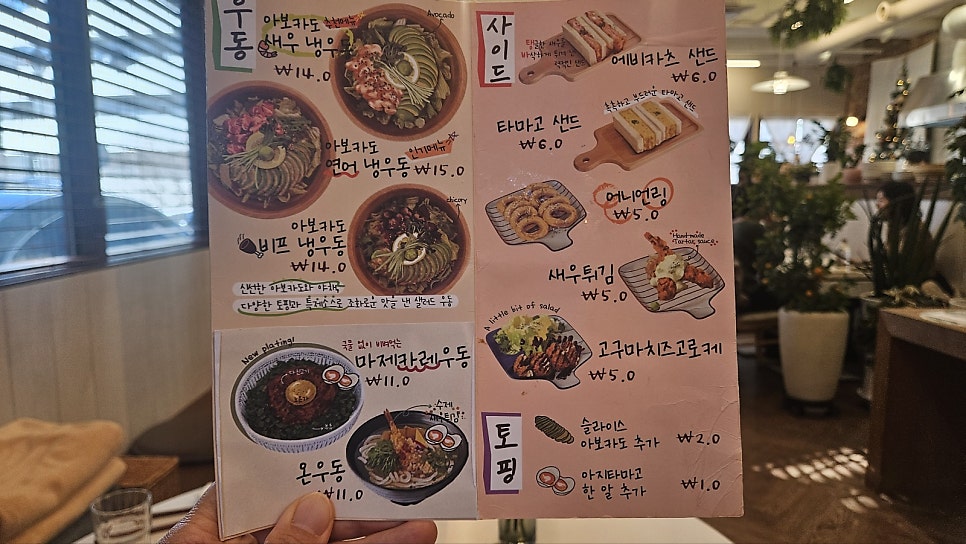 우동
아보카도 추천메뉴
새우 냉우동
₩14.0
Avocado
아보카도
연어 냉우동
인기메뉴
₩15.0
아보카도
비프 냉우동
₩14.0
chicory
신선한 아보카도와 야채,
다양한 토핑과 특제소스로 조화로운 맛을 낸 샐러드 우동
New plating!
국물 없이 비벼먹는
마제카레우동
₩11.0
수제
새우튀김
온우동
₩11.0
사이드
탱글한 새우를
바삭하게 튀겨
에비카츠 샌드
₩9.0
촉촉하고 부드러운 타마고 샌드
타마고 샌드
₩6.0
어니언링
₩5.0
Hand-made
Tartar sauce
새우튀김
₩5.0
A little bit of salad
고구마치즈고로케
₩5.0
토핑
슬라이스
아보카도 추가
₩2.0
아지타마고
한 알 추가
₩1.0